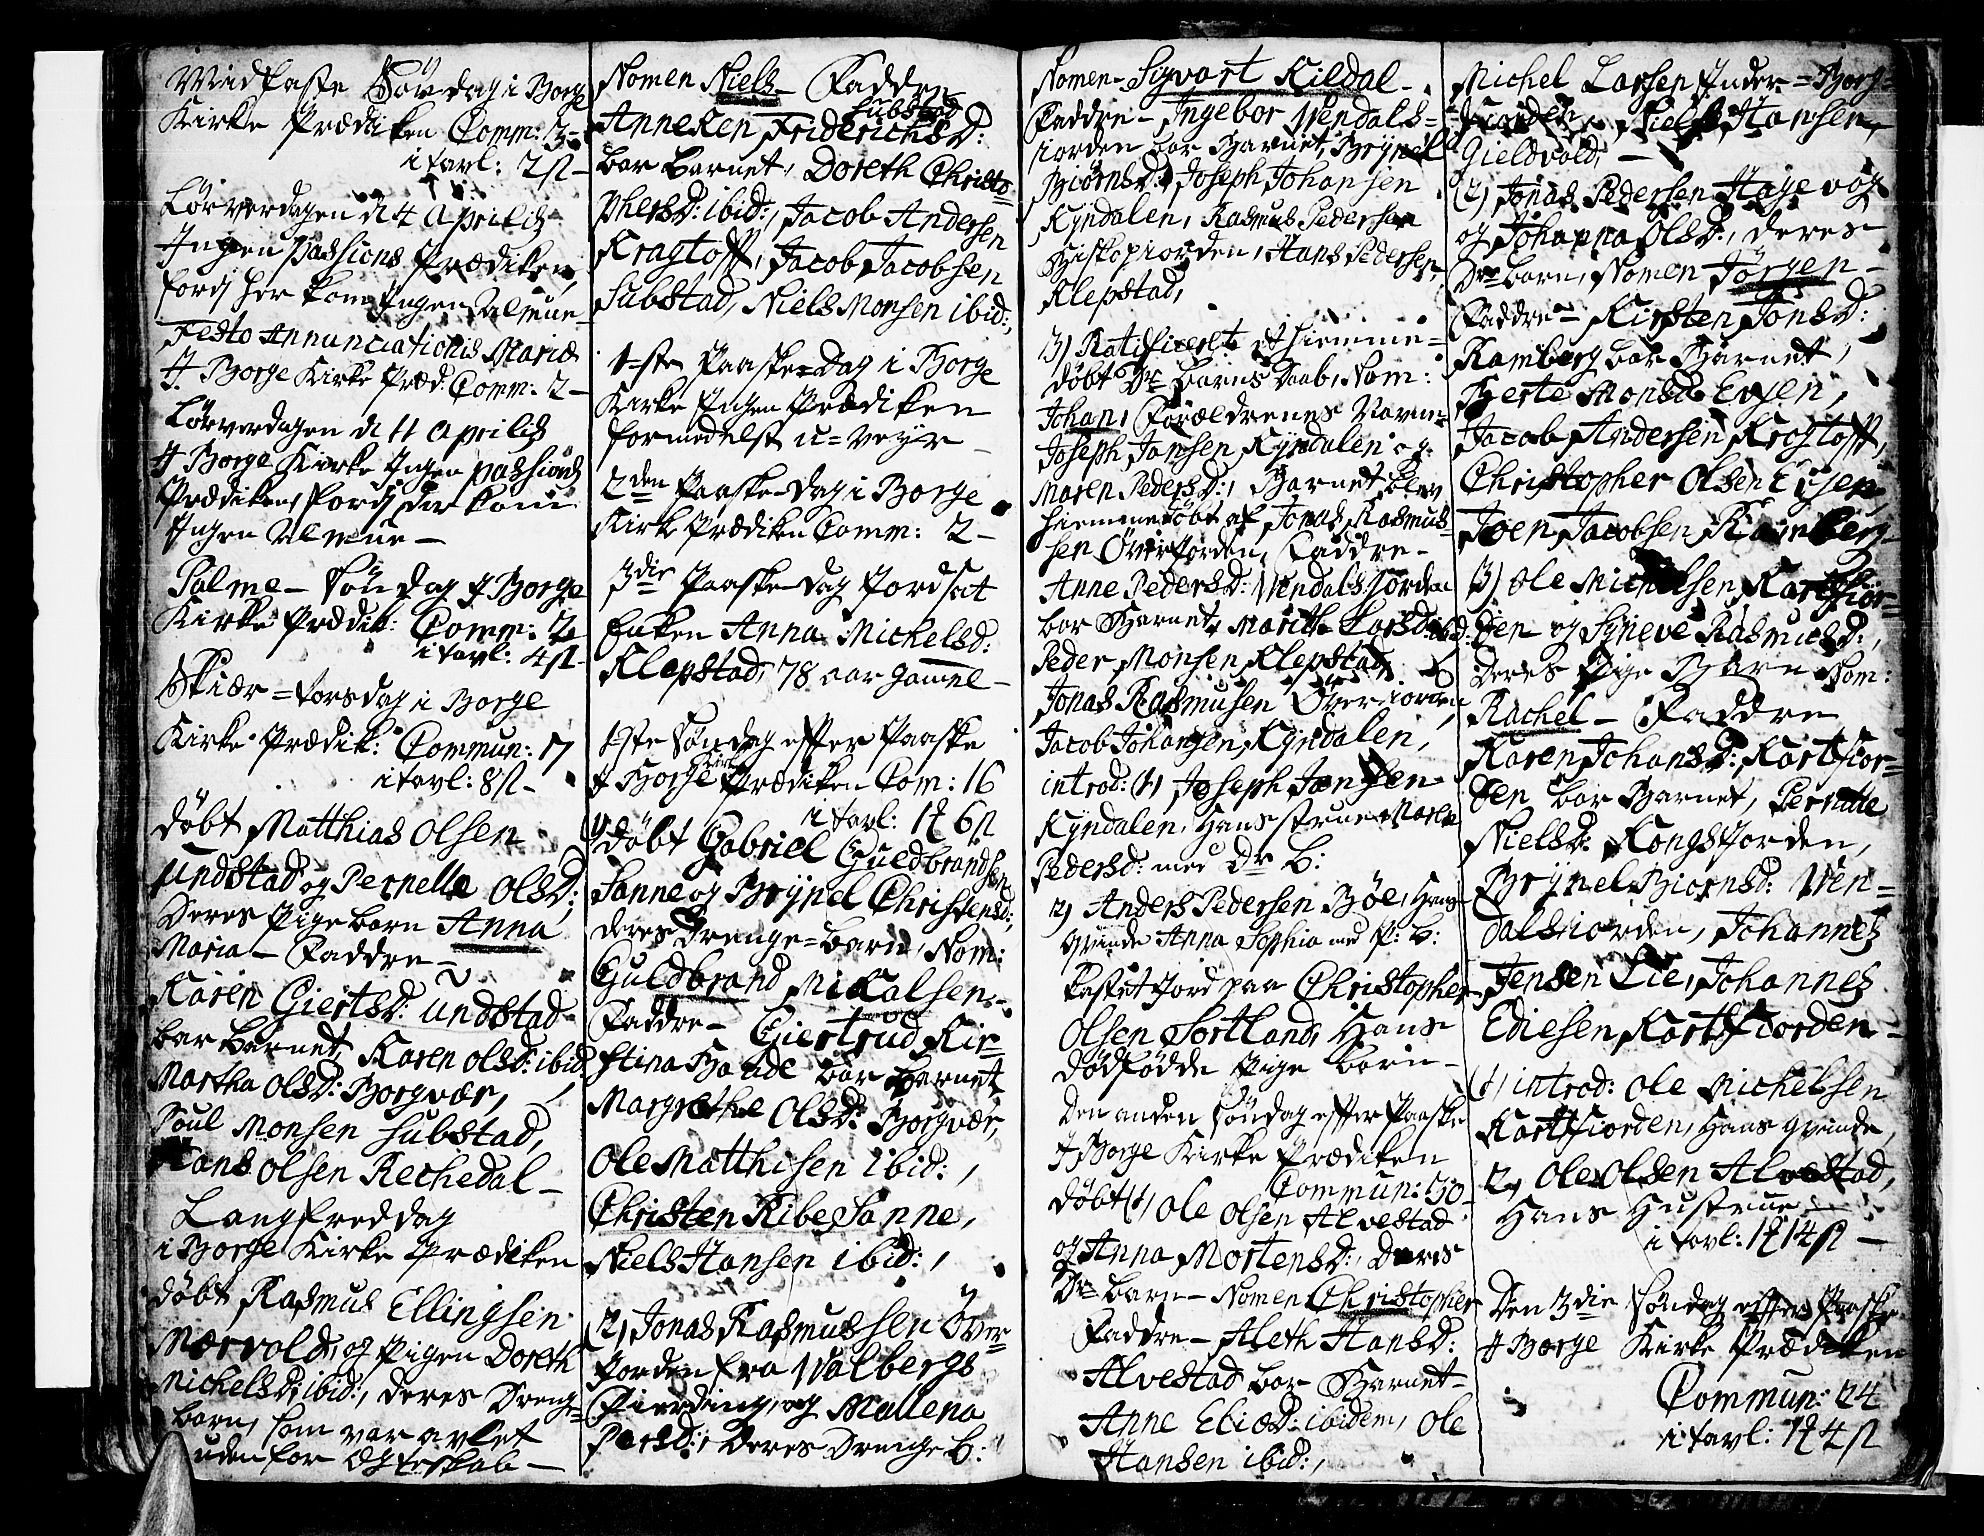 Midfaste Søndag i Borge
Kirke Prædiken Comm: 3-
i tavl: 2 ß-
Løverdagen d 4 Aprilis
Ingen Passions Prædiken,
fordj her kom Ingen Almue-
Festo Annunciationis Mariæ
J. Borge Kirke Præd: Comm: 2-
Løverdagen d 11 Aprilis
J Borge Kirke Ingen passions
Prædiken, fordj der kom
Ingen Almue-
Palme- Søndag J Borge
Kirke Prædik: Comm: 2
i tavl: 4 ß-
Skiær=torsdag i Borge
Kirke Prædik: Commun: 17
i tavl: 8 ß-
døbt Matthias Olsen
Undstad og Pernelle OlsD:
Deres Pige barn Anna
Maria- Faddre-
Karen GiertsD: Undstad
bar barnet, Karen OlsD: ibid
Martha OlsD: Borgvær,
Poul Monsen Substad,
Hans Olsen Rechedal-
Langfreddag
i Borge Kirke Prædiken
døbt Rasmus Ellingsen
Mærvold, og Pigen Doreth
MichelsD: ibid:, deres Dreng=
barn, som var avlet
uden for Ægteskab-
Nomen Niels- Faddre
Substad
Anneken FriderichsD:
bar barnet, Doreth Christo=
phersD: ibid:, Jacob Andersen
Kragtoff, Jacob Jacobsen
Substad, Niels Monsen ibid:,
1ste Paaske=Dag i Borge
Kirke Ingen Prædiken
formedelst u=veyr-
2den Paaske-Dag i Borge
Kirke Prædiken Comm: 2-
3die Paaske-dag Jordsat
Enken Anna MichelsD:
Klepstad, 78 aar gamel-
1ste Søndag efter Paaske
J Borge Kirk Prædiken Com: 16
i tavl: 1 6 ß
1) døbt Gabriel Guldbrandsen
Sanne og Brynel ChristensD:,
deres Drenge=barn, Nom:
Guldbrand Mikalsen-
Faddre- Giertrud Kir=
stina Bande bar barnet
Margrethe OlsD: Borgvær,
Ole Matthisen ibid:,
Christen Ribe Sanne,
Niels Hansen ibid:,
(2) Jonas Rasmussen Øver=
Jorden fra Valbergs
Fierding, og Mallena
PersD:, Deres Drenge B:
Nomen- Sigvart Kildal-
Faddre- Ingebor Vendals=
iorden bar Barnet, Brynel
BiørnsD: Joseph Johansen
Kyndalen, Rasmus Pedersen
Biskopiorden, Hans Pedersen
Klepstad,
3) Ratificeret et hiemme=
døbt Dr: barns Daab, Nom:
Johan, Forældrenes Navn=
Joseph Jansen Kyndalen og
Maren PedersD:, Barnet blev
hiemmedøbt af Jonas Rasmus=
sen Øveriorden, Faddre-
Anne PedersD: Vendalsiorden
bar Barnet, Marith LarsD: ibid:
Peder Monsen Klepstad,
Jonas Rasmusen Øveriorden
Jacob Johansen Kyndalen,
introd: (1) Joseph Jansen
Kyndalen, Hans Hustrue Maren
PedersD: med Dr B:
2) Anders Pedersen Bøe, Hans
Qvinde Anna Sophia med P: B:
kastet Jord paa Christopher
Olsen Sortland, Hans
dødfødde Pige barn-
Den anden Søndag efter Paaske
J Borge Kirke Prædiken
Commun: 50-
døbt (1) Ole Olsen Alvestad
og Anna MortensD:, Deres
Dr barn- Nomen Christopher
Faddre- Aleth HansD:
Alvestad bar Barnet-
Anne EliæD: ibidem, Ole
Hansen ibid:,
Michel Larsen Inder=Borg=
fiorden, Niels Hansen
Gieldvold,-
(2) Jonas Pedersen Hage vog
og Johanna OlsD:, deres
Dr barn, Nomen Jörgen-
Faddre- Kirsten JonsD:
Ramberg bar Barnet,
Berte MonsD: Eysen,
Jacob Andersen Krogtoff,
Christopher Olsen Eysen,
Joen Jacobsen Ramberg-
(3) Ole Michelsen Kartfior=
den og Syneve RasmusD:,
Deres Pige Barn Nom:
Rachel- Faddre
Karen JohansD: Kartfior=
den bar Barnet, Pernille
NielsD: Kongsjorden,
Brynel BiornsD: Ven=
dalsiorden, Johannes
Jensen Lie, Johannes
Ediesen Kartfiorden-
(1) introd: Ole Michelsen
Kartfiorden, Hans Qvinde
2, Ole Olsen Alvestad,
Hans Hustrue-
i tavl: 1 14 ß-
Den 3die Søndag efter Paaske
J Borge Kirke Prædiken
Commun: 24
i tavl: 1 4 ß